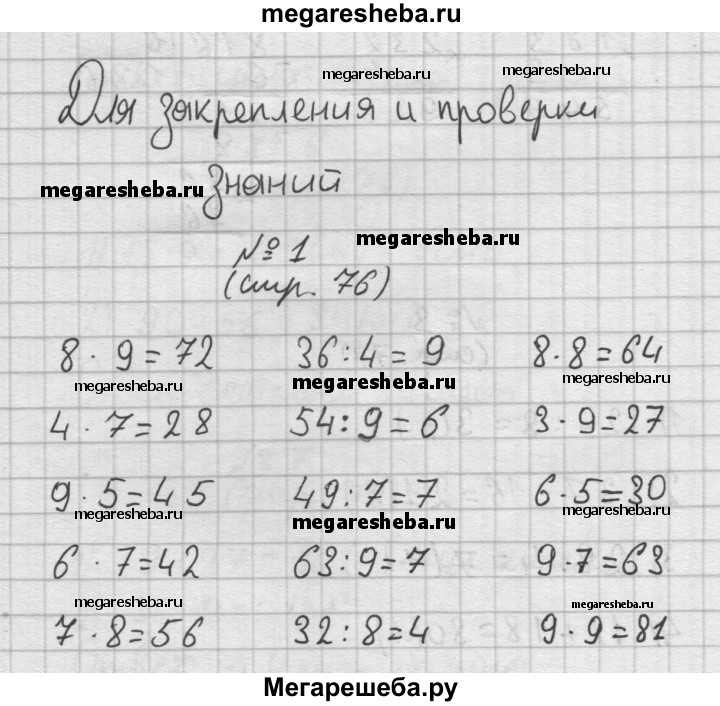 megaresheba.ru
Для закрепления и проверки
megaresheba.ru megaresheba.ru
знаний
megaresheba.ru
№ 1
megaresheba.ru
(стр. 76)
8 · 9 = 72 36 : 4 = 9 8 · 8 = 64
megaresheba.ru megaresheba.ru megaresheba.ru
4 · 7 = 28 54 : 9 = 6 3 · 9 = 27
9 · 5 = 45 49 : 7 = 7 6 · 5 = 30
megaresheba.ru megaresheba.ru megaresheba.ru
6 · 7 = 42 63 : 9 = 7 9 · 7 = 63
megaresheba.ru megaresheba.ru
7 · 8 = 56 32 : 8 = 4 9 · 9 = 81
Мегарешеба.ру